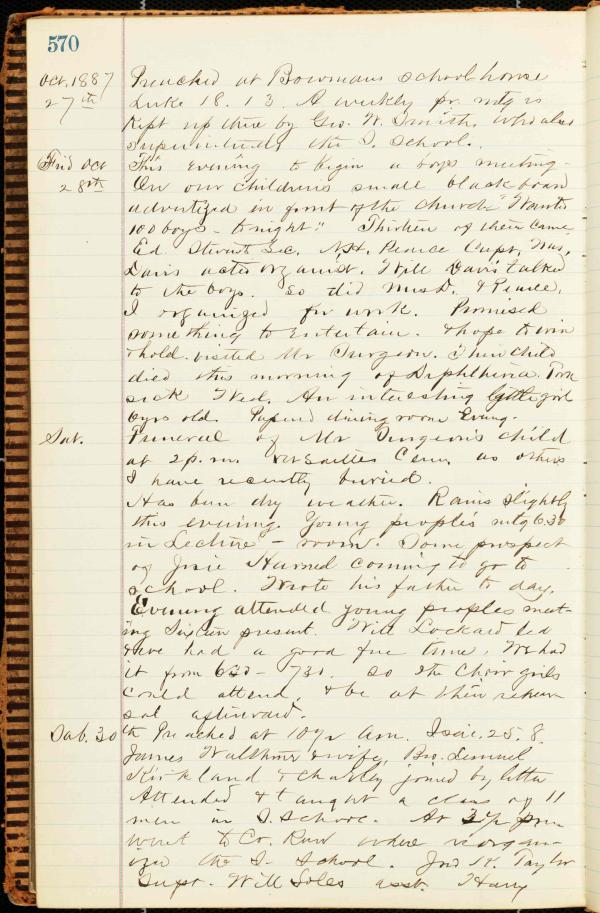 570
Oct. 1887 Preached at Bowmans schoolhouse
27th Luke 18. 13. A weekly pr. mtg is
kept up there by Geo. W. Smith, who also
superintends the S. School.
Frid Oct This evening to begin a boys meeting -
28th On our childrens small blackboard
advertized in front of the church "Wanted
100 boys - to night." Thirteen of them came
Ed. Sec. N.H. Pearce Supt, Was.
Davis acted organist. Will Davis talked
to the boys. So did Miss D. & Pearce.
I organized for work. Promised
something to entertain. & hope to win
& hold. visited Mr Turgeon. Their child
died this morning of Diphtheria. Torn
sick Wed. An interesting little girl
6 yrs old. Papered dining room Evning.
Sat. Funeral of Mr Turgeon's child
at 2 p.m. Versailles Cem. as others
I have recently buried.
Has been dry weather. Rains slightly
this evening. Young people's mtg 6.30
in Lecture - room. Some prospect
of Josie coming to go to
school. Wrote his father to day.
Evening attended young peoples meet-
ing Sixteen present. Will Lockard led
& we had a good fine time. We had
it from 6 30 - 7 30. so the Choir girls
could attend, & be at their rehear-
sal afterward.
Sab. 30 th Preached at 10 1/2 Am. Isai. 25. 8.
James & wife, Bro. Lemuel
Kirkland & Charley joined by letter
Attended & taught a class of 11
men in S. School. At 3 1/2 pm
went to Co. Row where reorgan-
ized the S. School. Jno R. Taylor
Supt. Will Soles asst. Harry